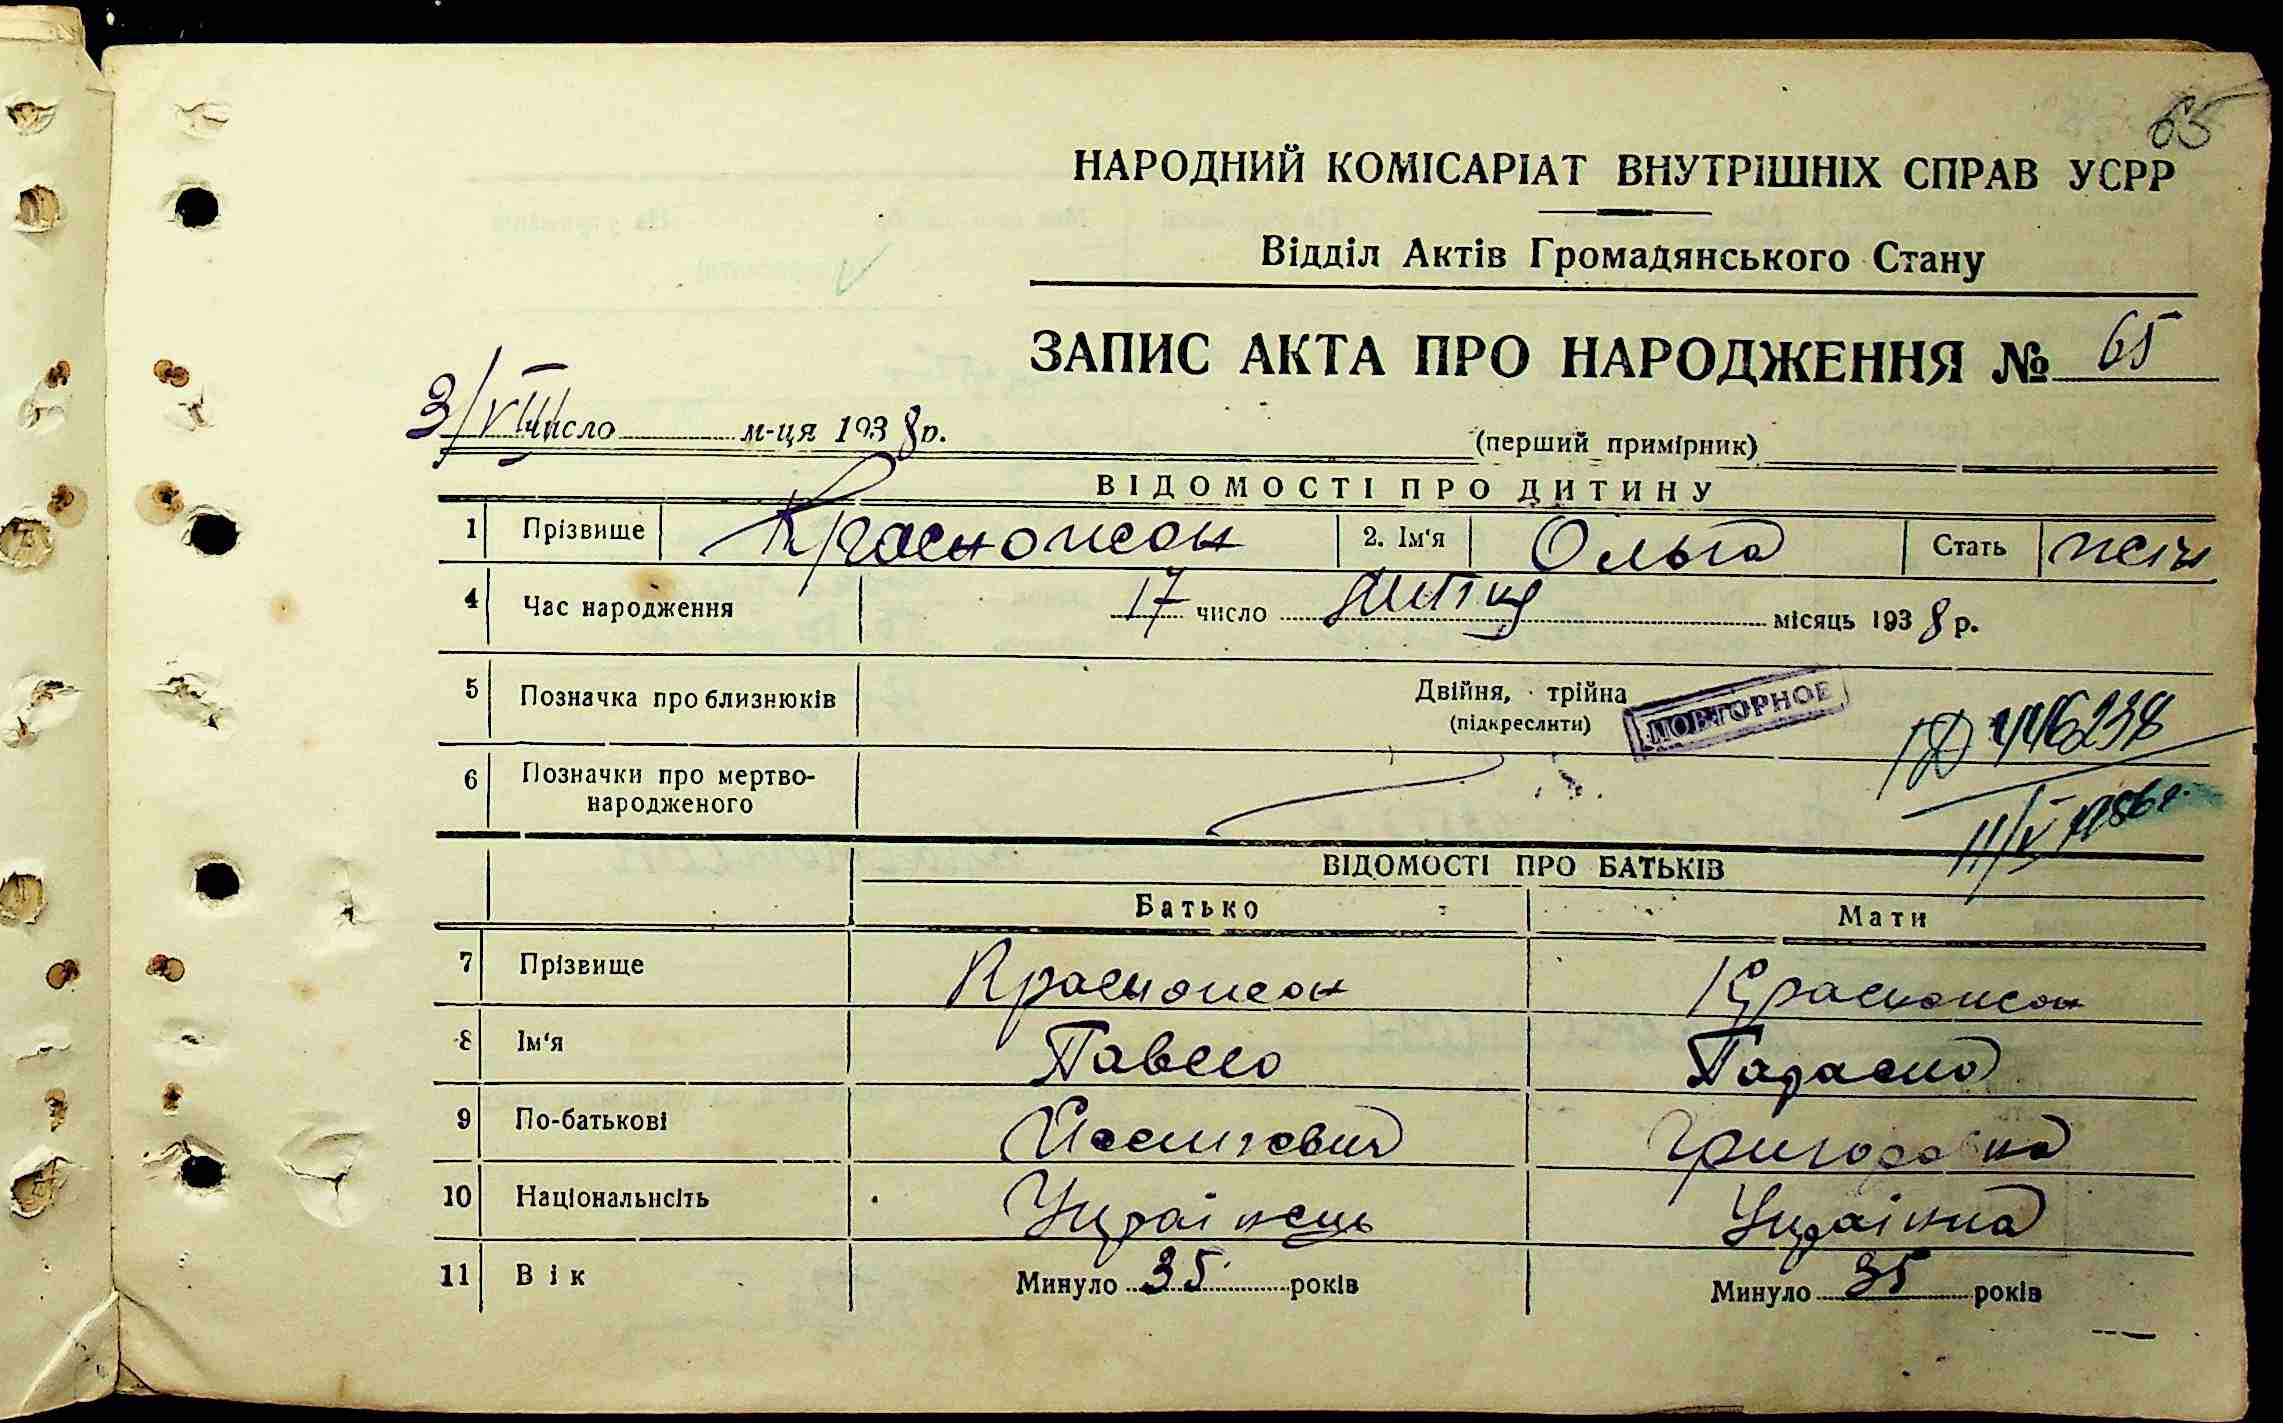 65
НАРОДНИЙ КОМІСАРІАТ ВНУТРІШНІХ СПРАВ УСРР
Відділ Актів Громадянського Стану
ЗАПИС АКТА ПРО НАРОДЖЕННЯ № 65
3/VIII число м-ця 1938 р.
(перший примірник)
ВІДОМОСТІ ПРО ДИТИНУ
1 Прізвище Красножон 2. Ім'я Ольга Стать жін
4 Час народження 17 число липня місяць 1938 р.
5 Позначка про близнюків Двійня, трійна
(підкреслити)
ПОВТОРНОЕ
6 Позначки про мертво-
народженого
ВІДОМОСТІ ПРО БАТЬКІВ
Батько Мати
7 Прізвище Красножон Красножон
8 Ім'я Павло
9 По-батькові
10 Національнсіть Українець Українка
11 Вік Минуло 35 років Минуло 35 років